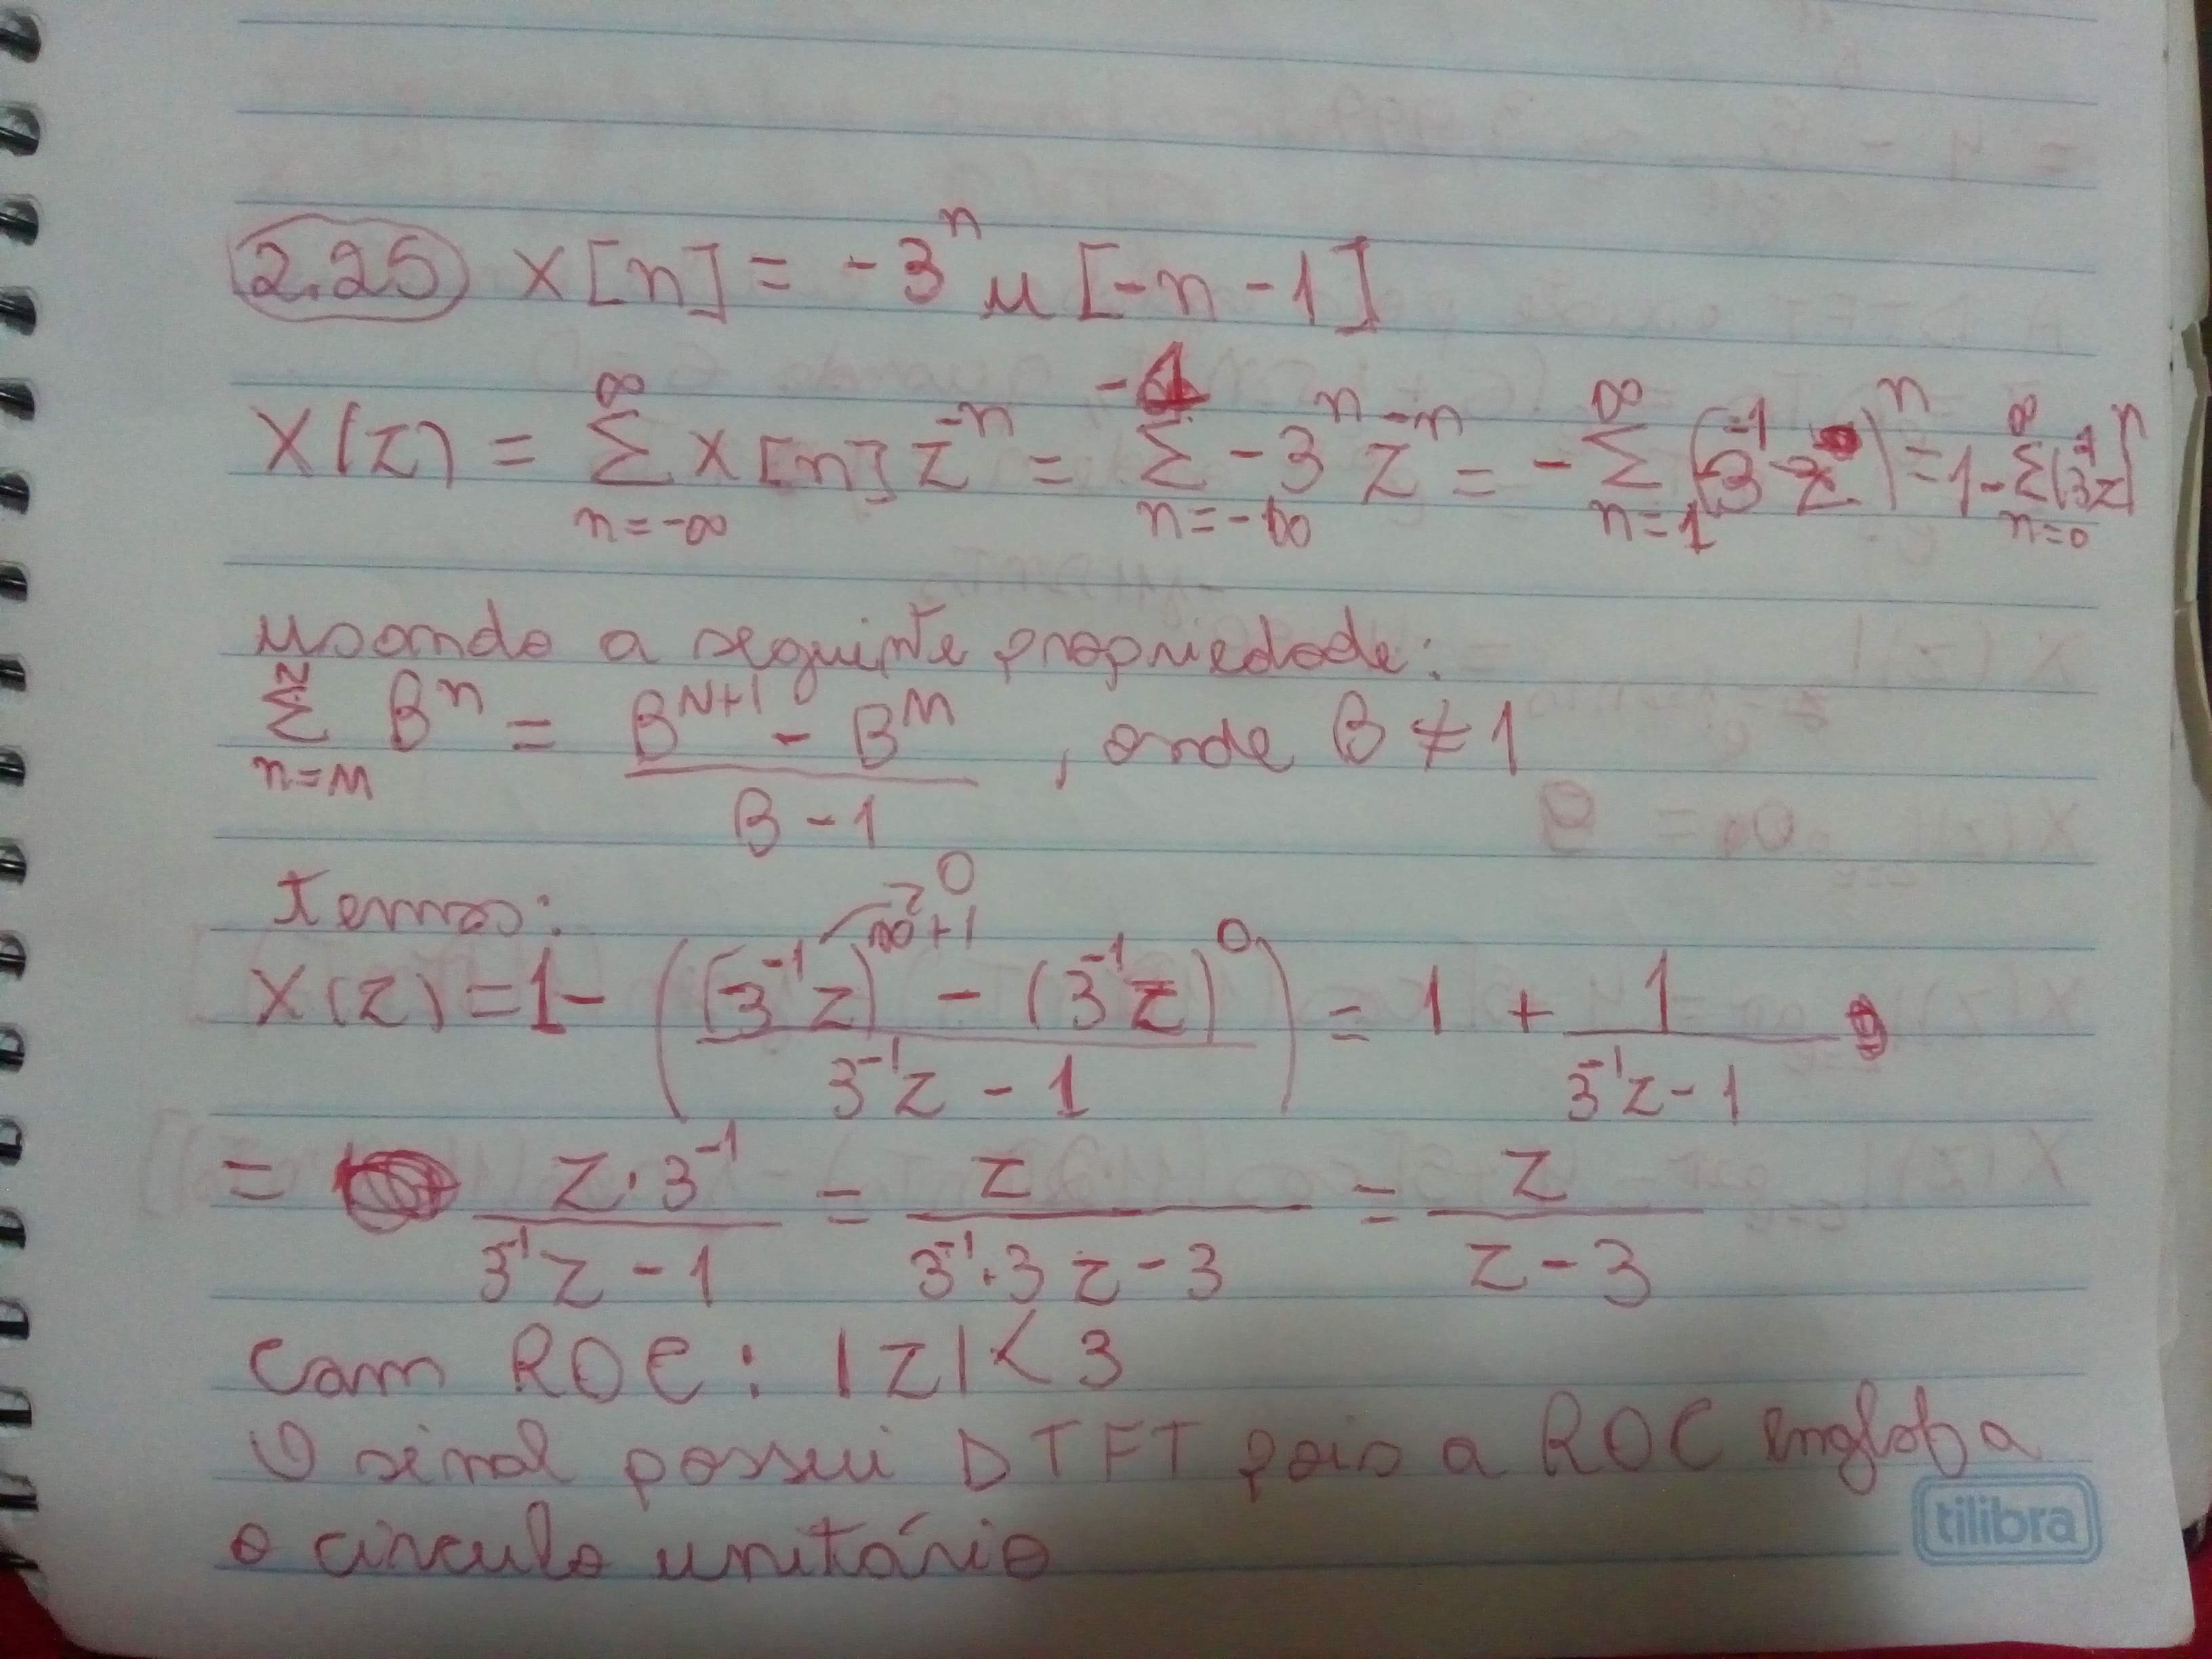 2.25 x[n] = -3^n u[-n-1]
X(z) = ∑_{n=-∞}^{∞} x[n] z^{-n} = ∑_{n=-∞}^{-1} -3^n z^{-n} = -∑_{n=1}^{∞} (3^{-1} z)^n = 1 - ∑_{n=0}^{∞} (3^{-1} z)^n
usando a seguinte propriedade:
∑_{n=M}^{N} B^n = (B^{N+1} - B^M) / (B - 1), onde B ≠ 1
temos:
X(z) = 1 - (((3^{-1} z)^{∞+1} → 0 - (3^{-1} z)^0) / (3^{-1} z - 1)) = 1 + 1 / (3^{-1} z - 1)
= (z·3^{-1}) / (3^{-1} z - 1) = z / (3^{-1}·3 z - 3) = z / (z - 3)
com ROC: |z| < 3
O sinal possui DTFT pois a ROC engloba
o círculo unitário
tilibra